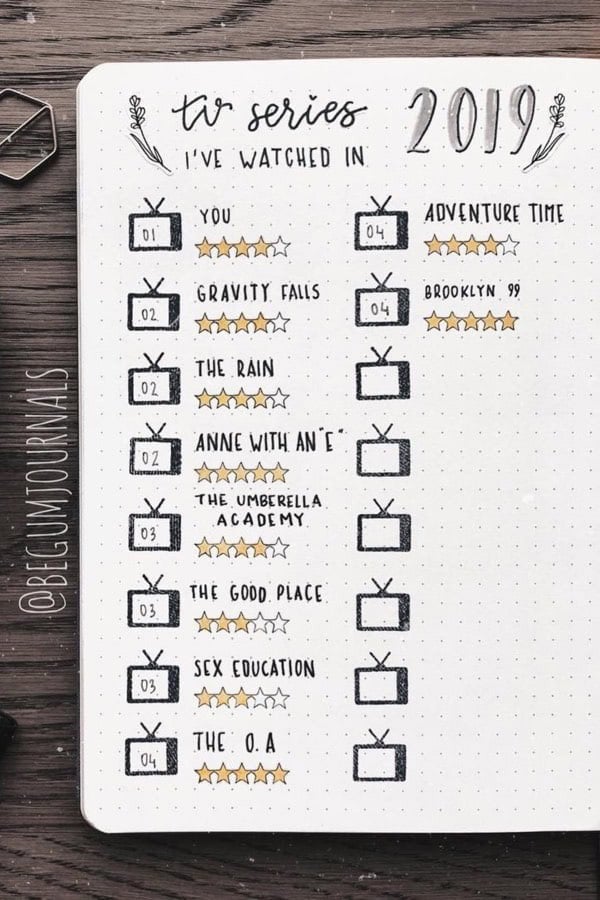 tv series
I'VE WATCHED IN
2019
01 YOU
02 GRAVITY FALLS
02 THE RAIN
02 ANNE WITH AN "E"
03 THE UMBERELLA
ACADEMY
03 THE GOOD PLACE
03 SEX EDUCATION
04 THE O.A
04 ADVENTURE TIME
04 BROOKLYN 99
@BEGUMJOURNALS